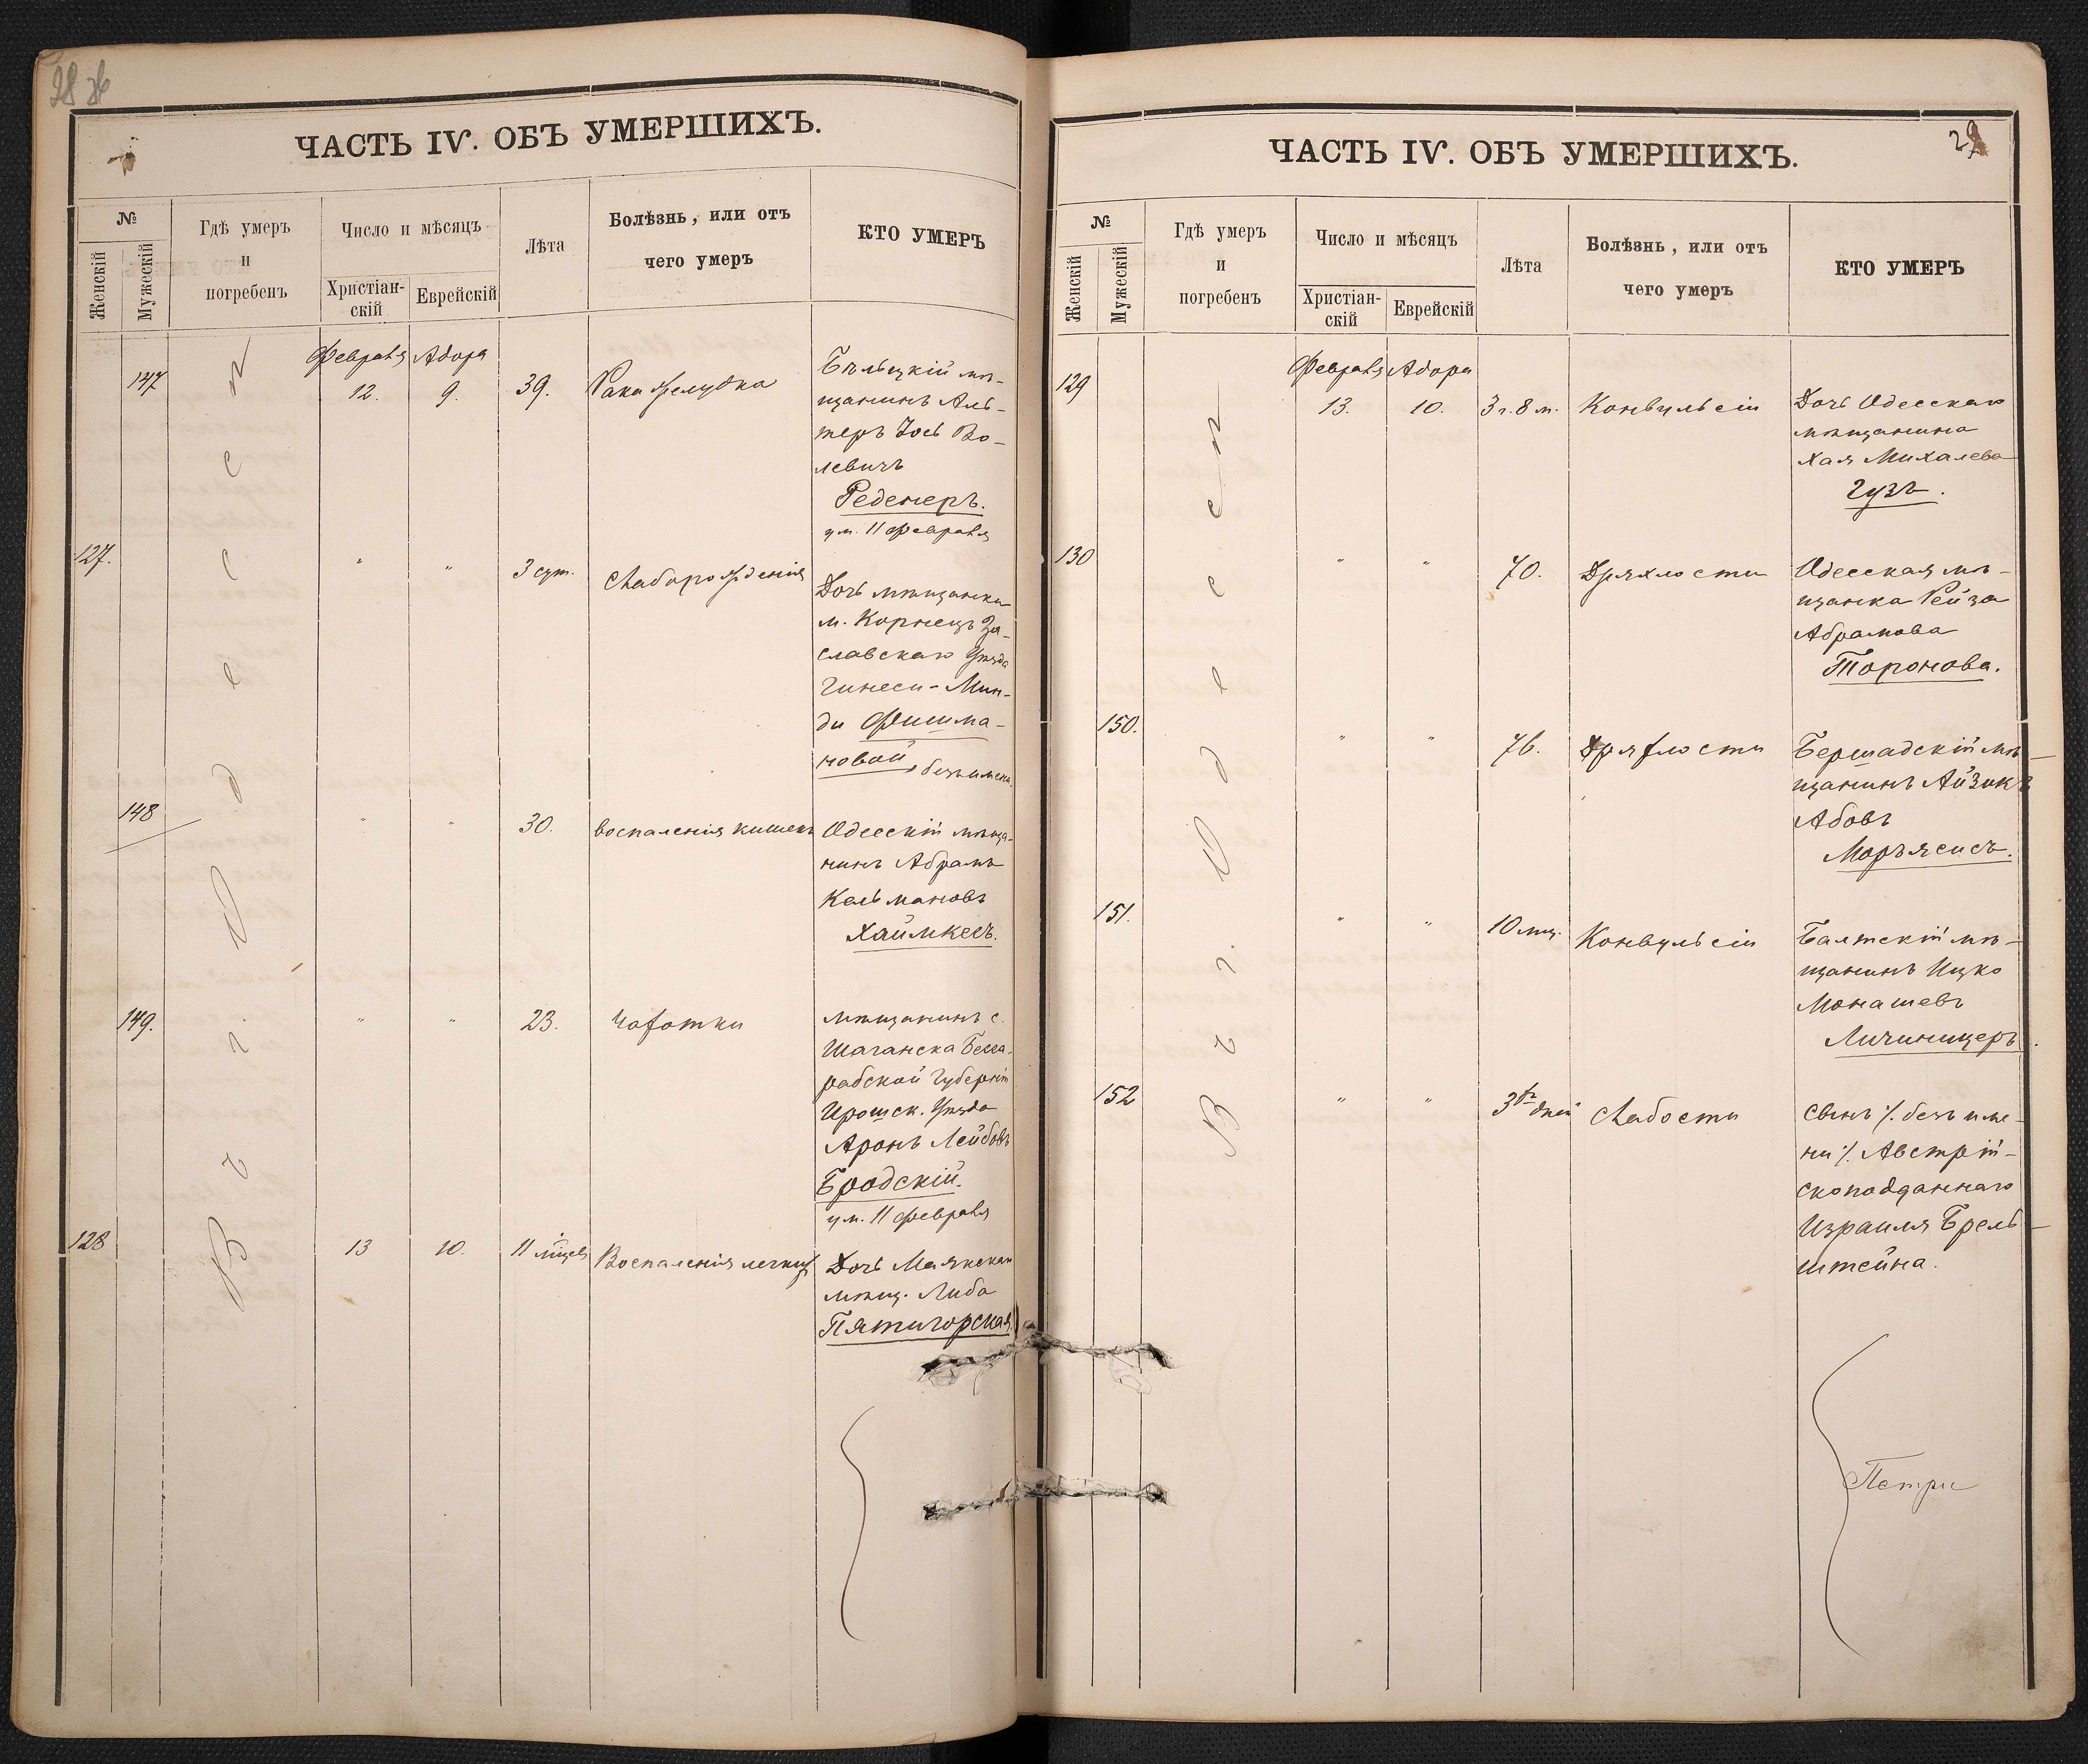 ЧАСТЬ IV. ОБЪ УМЕРШИХЪ.
№
Женскій
Мужескій
Гдѣ умеръ
и
погребенъ
Число и мѣсяцъ
Христіан-
скій
Еврейскій
Лѣта
Болѣзнь, или отъ
чего умеръ
КТО УМЕРЪ
Въ г. Одессѣ
Февраля Адора
147 12. 9. 39. Рака желудка
Бѣльцкій мѣ-
щанинъ Аль-
теръ Іось Во-
левичъ
Реденеръ.
ум. 11 Февраля
127. " " 3 сут. Слаборожденія
Дочь мѣщанки
м. Корнецъ За-
славскаго Уѣзда
Гинеси-Мин-
ди Фишма-
новой, безъ имени.
148 " " 30. Воспаленія кишекъ
Одесскій мѣща-
нинъ Абрамъ
Кельмановъ
Хаймкесъ.
149. " " 23. Чахотки
Мѣщанинъ с.
Шаганска Бесса-
рабской Губерніи
Аронъ Лейбовъ
Бродскій.
ум. 11 Февраля
128 13 10. 11 мѣцевъ Воспаленія легкихъ
Дочь Маякскаго
мѣщ. Либа
Пятигорская
ЧАСТЬ IV. ОБЪ УМЕРШИХЪ.
29
№
Женскій
Мужескій
Гдѣ умеръ
и
погребенъ
Число и мѣсяцъ
Христіан-
скій
Еврейскій
Лѣта
Болѣзнь, или отъ
чего умеръ
КТО УМЕРЪ
Въ г. Одессѣ
Февраля Адора
129 13. 10. 3 г. 8 м. Конвульсіи
Дочь Одесскаго
мѣщанина
Хая Михалева
Гузъ.
130 " " 70. Дряхлости
Одесская мѣ-
щанка Рейза
Абрамова
Торонова.
150. " " 76. Дряхлости
Бершадскій мѣ-
щанинъ Айзикъ
Абовъ
Моръясисъ.
151. " " 10 мц. Конвульсіи
Балтскій мѣ-
щанинъ Ицко
Монашевъ
Личиницеръ.
152 " " 3хъ дней Слабости
Сынъ ·/. безъ име-
ни ·/. Австрій-
скоподданнаго
Израиля Брель-
штейна.